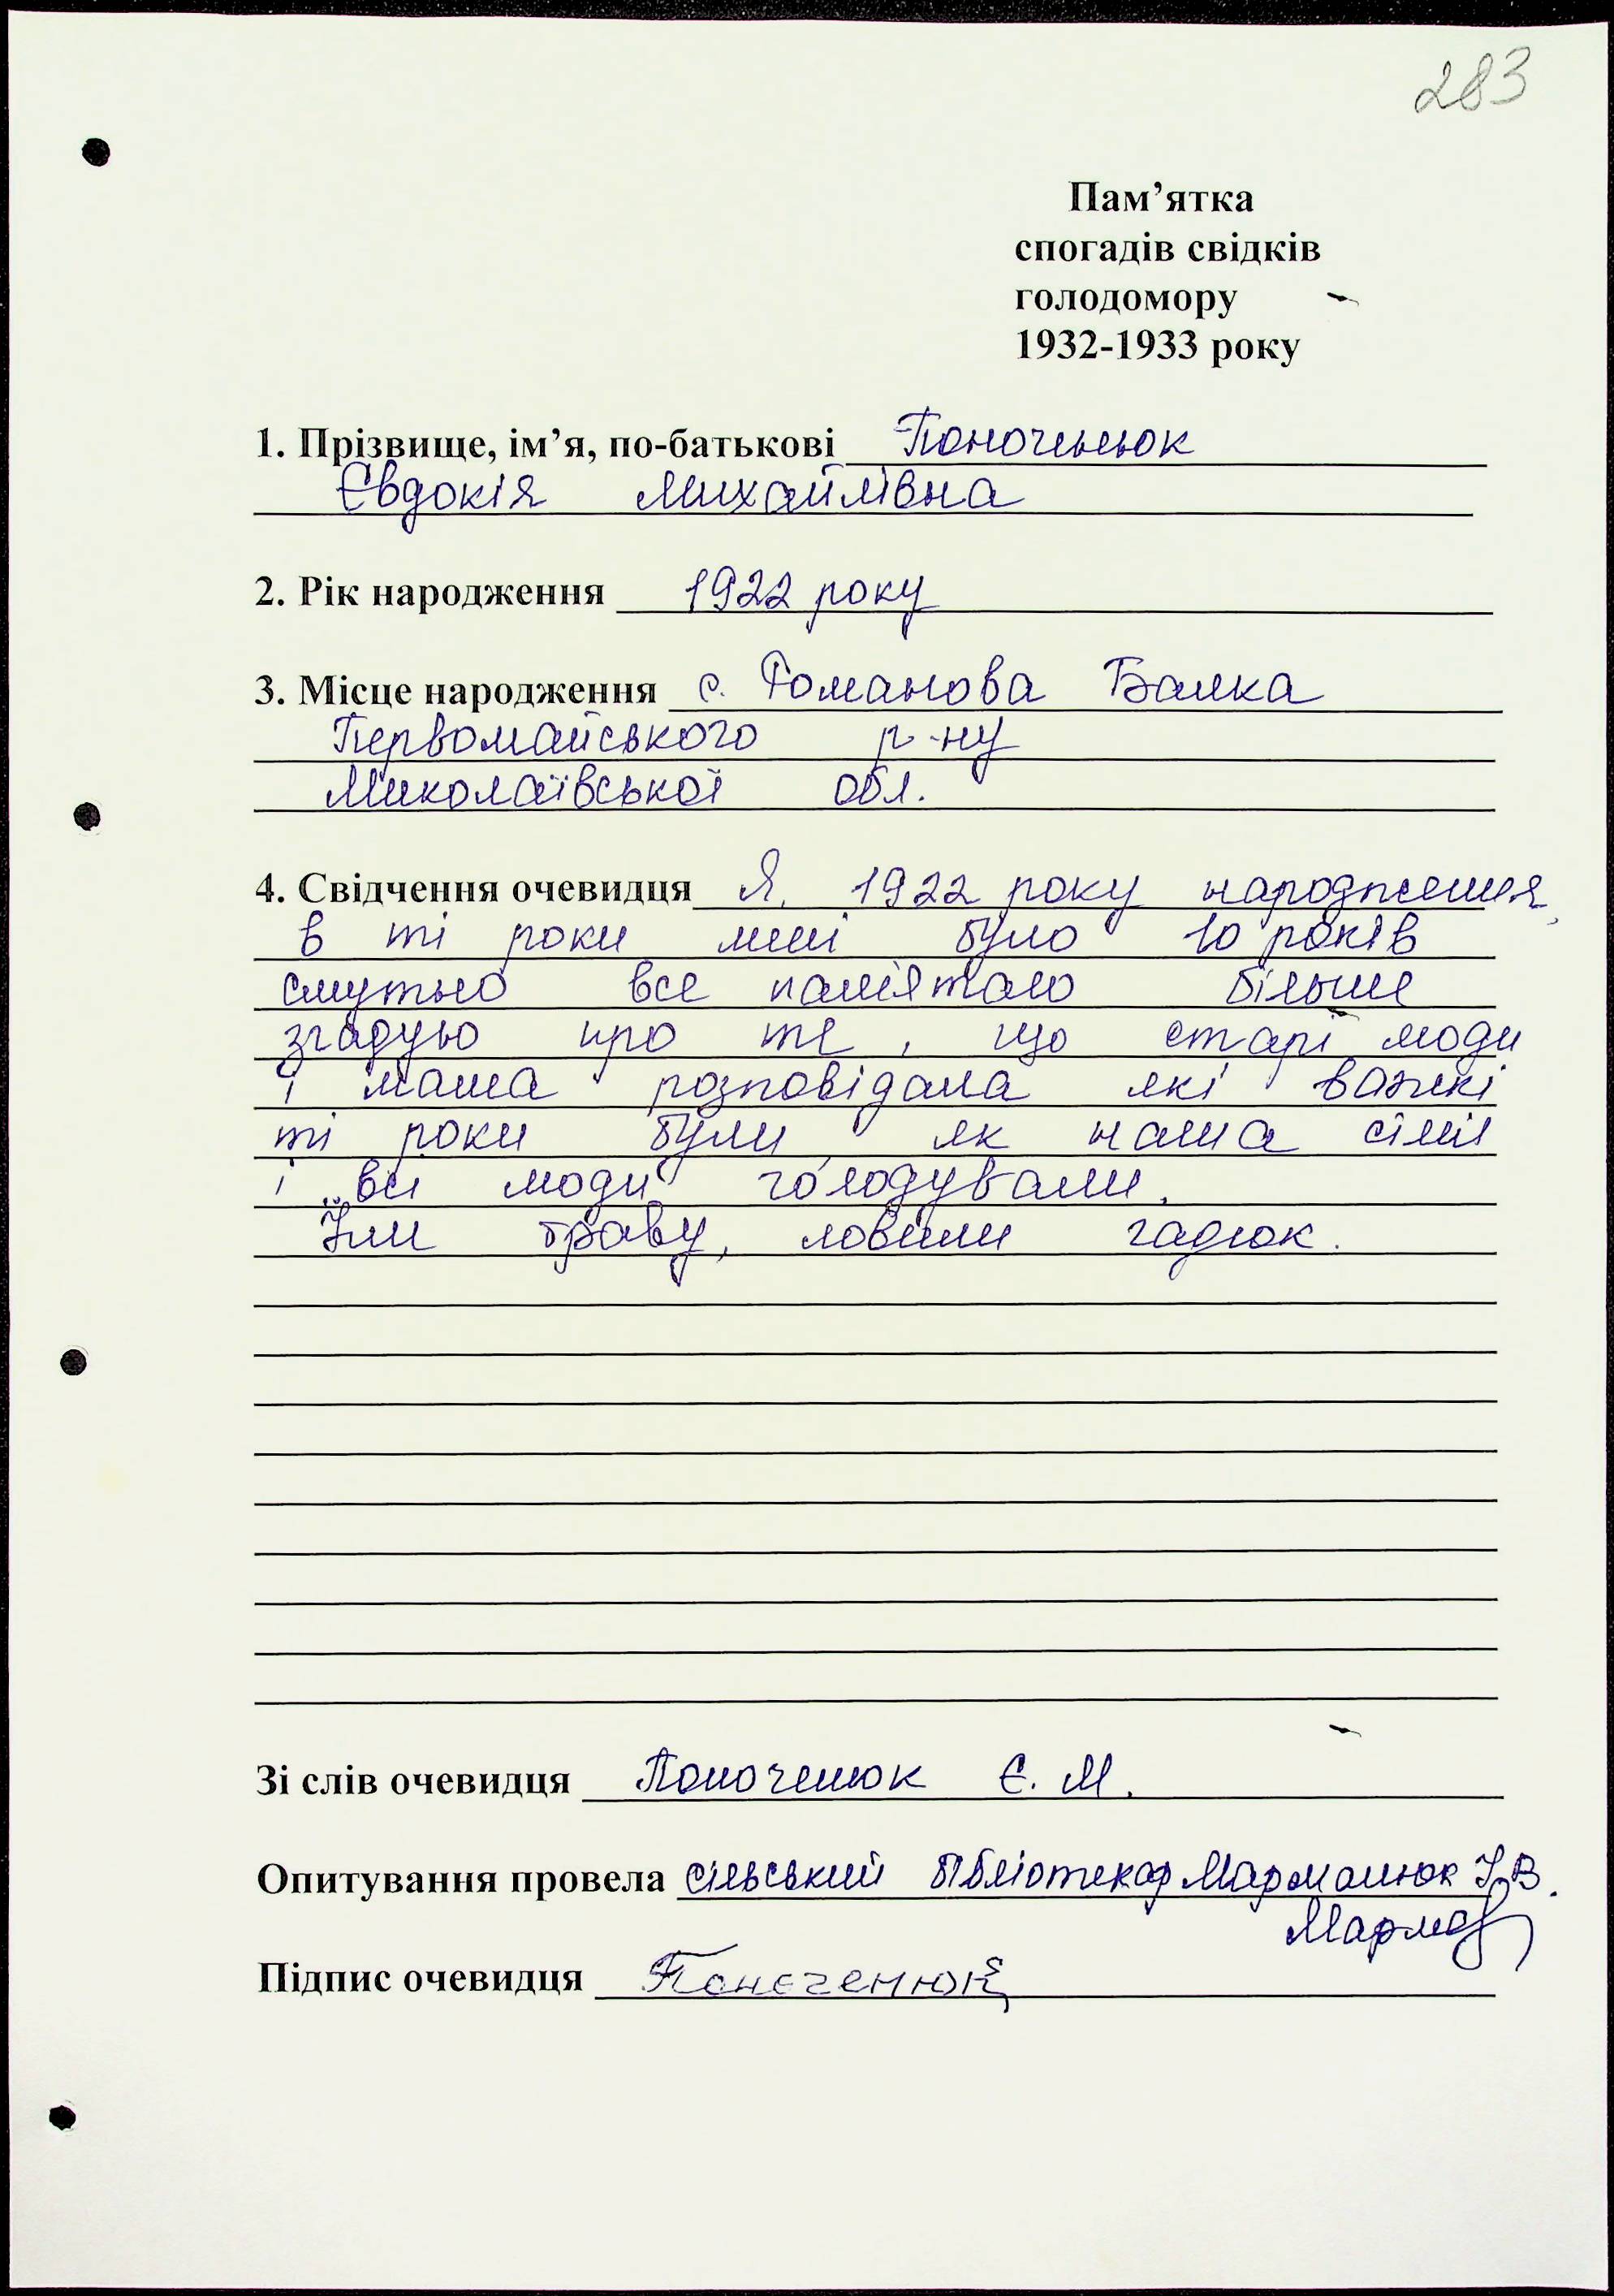 283
Пам’ятка
спогадів свідків
голодомору
1932-1933 року
1. Прізвище, ім’я, по-батькові Поноченюк
Євдокія Михайлівна
2. Рік народження 1922 року
3. Місце народження с. Романова Балка
Первомайського р-ну
Миколаївської обл.
4. Свідчення очевидця Я, 1922 року народження,
в ті роки мені було 10 років
смутьно все памíятаю більше
згадую про те, що старі люди
і мама розповідала які важкі
ті роки були, як наша сімія
і всі люди голодували.
Їли траву, ловили гадюк.
Зі слів очевидця Поноченюк Є. М.
Опитування провела сільський бібліотекар Мармалюк І.В.
Підпис очевидця Поноченюк